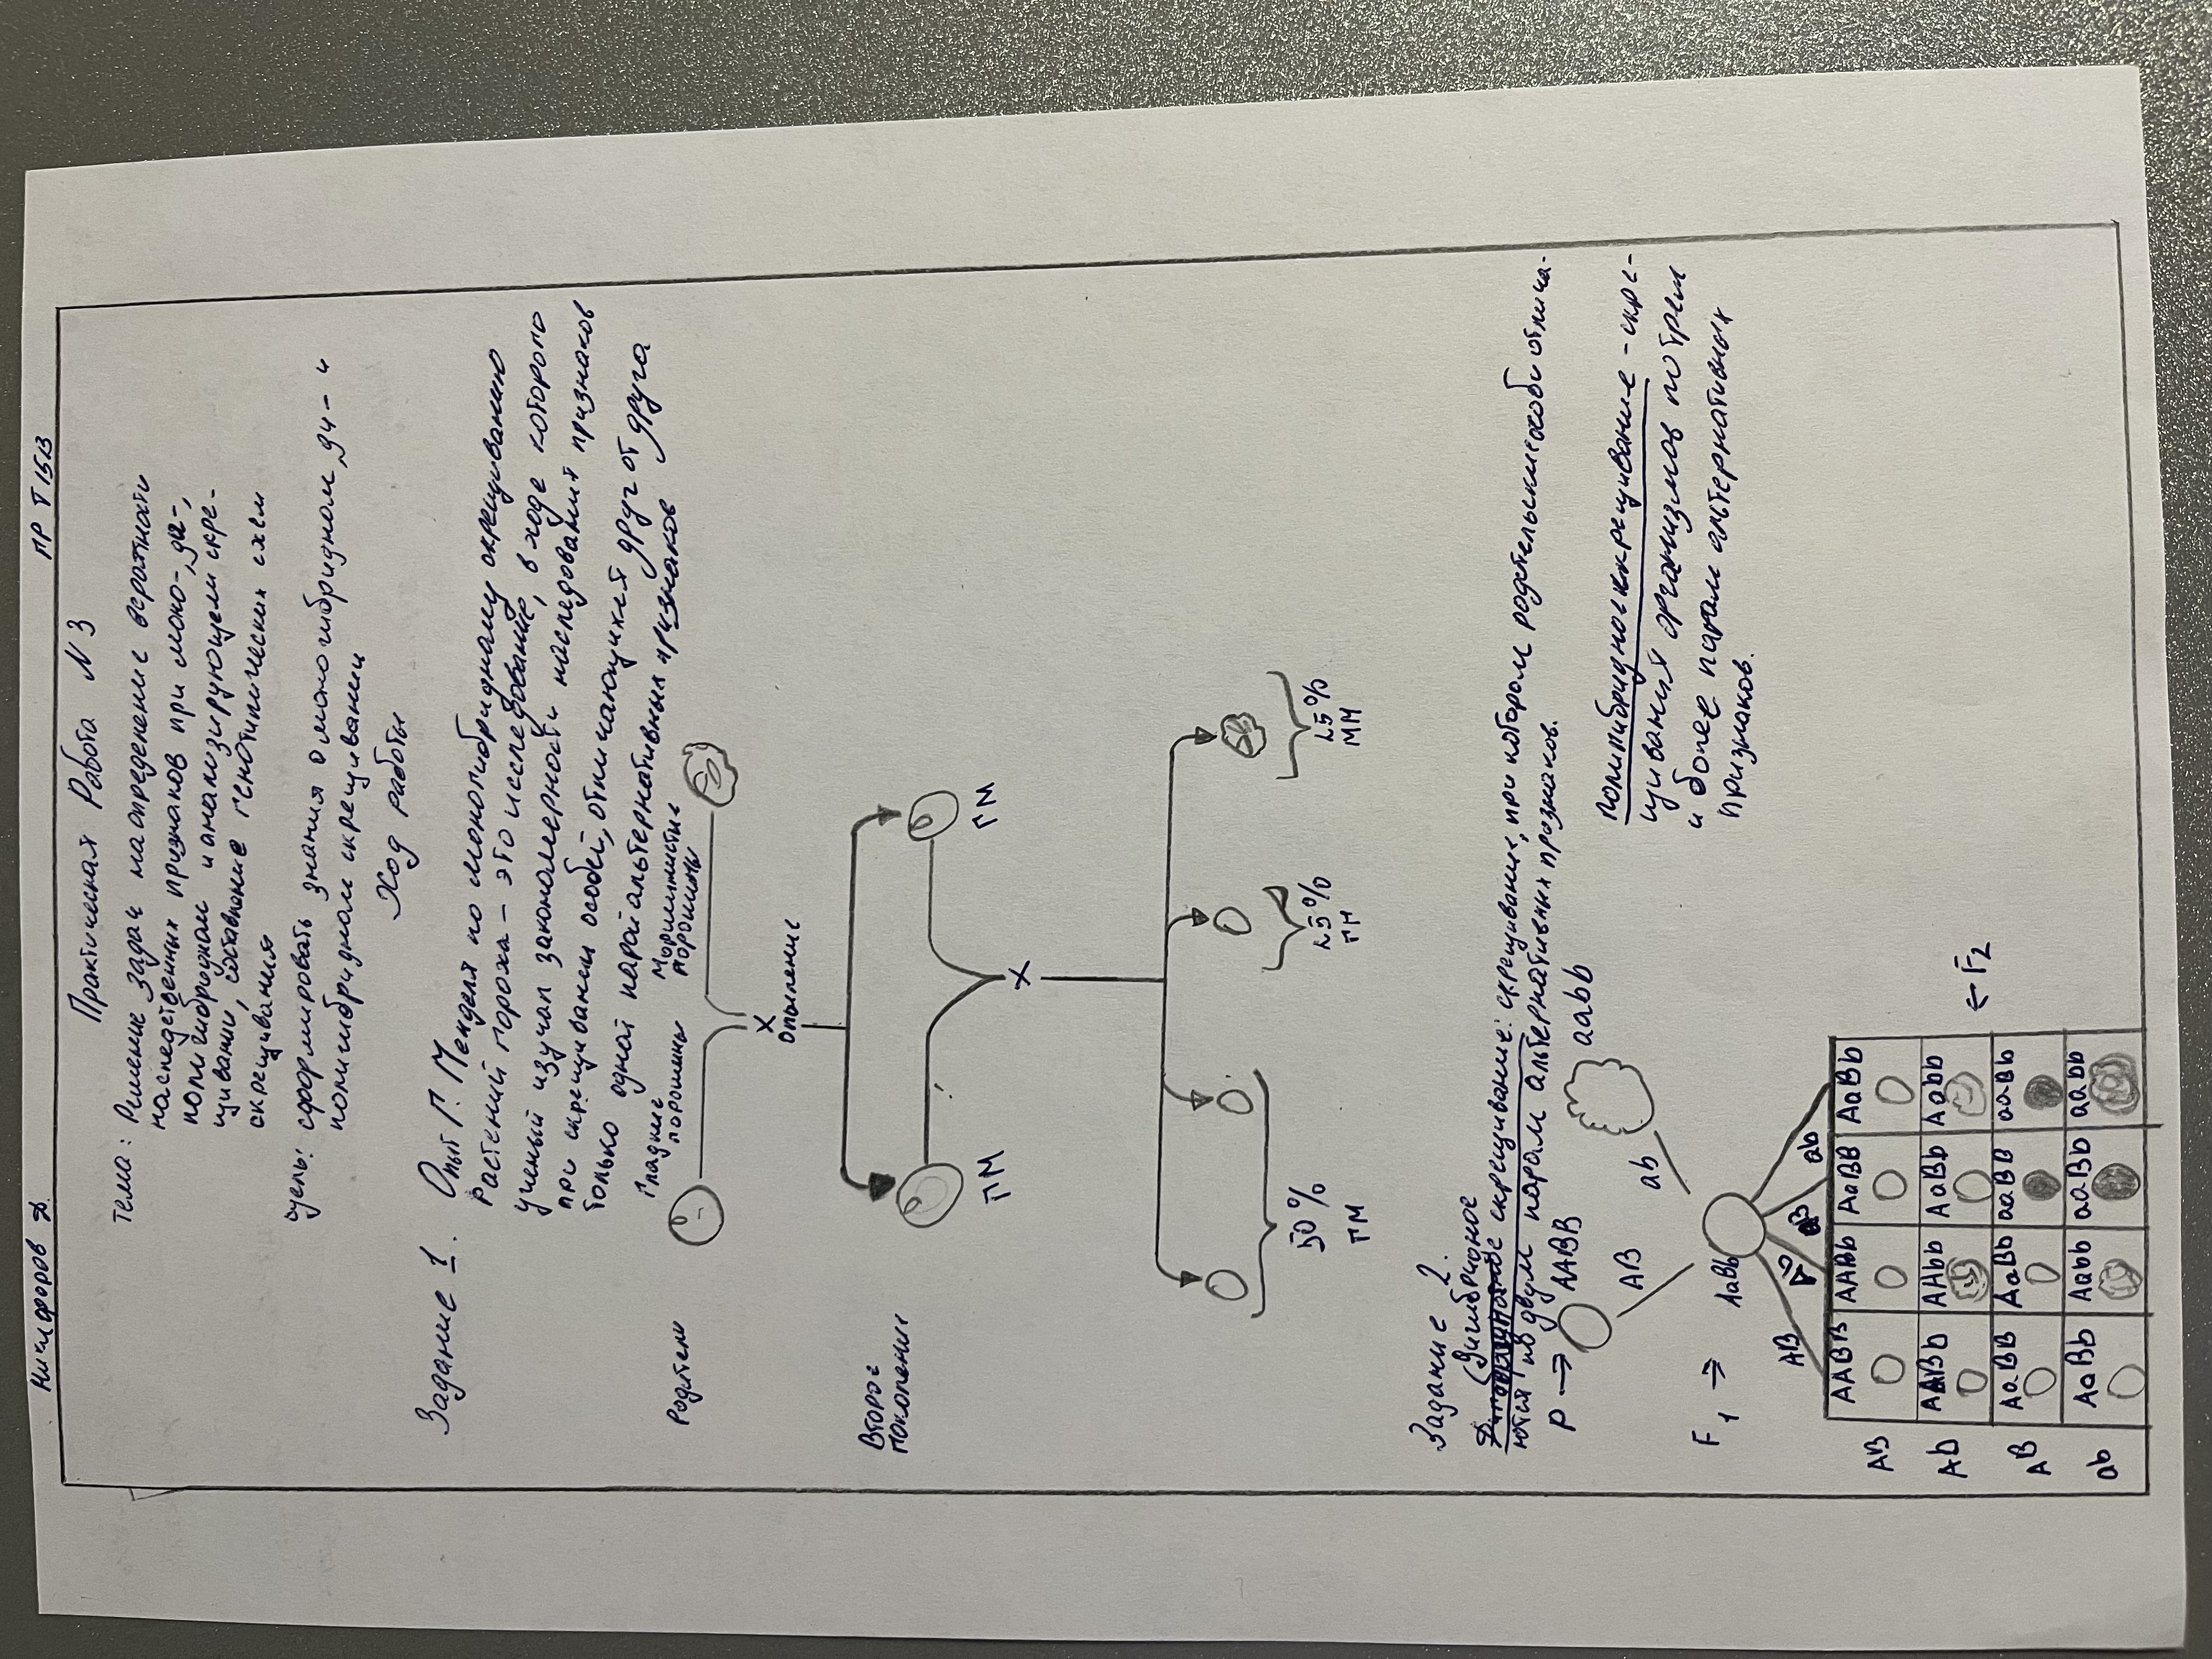 Никифоров Д.
ПР Т15В
Практическая Работа N 3
Тема: Решение задач на определение вероятности
наследственных признаков при моно-, ди-,
полигибродном и анализирующем скре-
щивании, составление генотипических схем
скрещивания
цель: сформировать знания о моногибридном, ди- и
полигибридном скрещивании
Ход работы
Задание 1. Опыт Г. Менделя по моногибридному скрещиванию
растений гороха - это исследование, в ходе которого
ученый изучал закономерности наследования признаков
при скрещивании особей, отличающихся друг от друга
только одной парой альтернативных признаков
Гладкие
горошины
Морщинистые
горошины
Родители
X
Опыление
Второе
поколение
ГМ
ГМ
X
50%
ГМ
25%
ГМ
25%
ММ
Задание 2.
Дигибридное
скрещивание: скрещивание, при котором родительские особи отлича-
ются по двум парам альтернативных признаков.
P → AABB
aabb
AB
ab
полигибридное скрещивание - скре-
щивания организмов по трем
и более парам альтернативных
признаков.
F1 →
AaBb
AB
Ab
aB
ab
AB AABB AABb AaBB AaBb
Ab AABb AAbb AaBb Aabb
← F2
AB AaBB AaBb aaBB aaBb
ab AaBb Aabb aaBb aabb